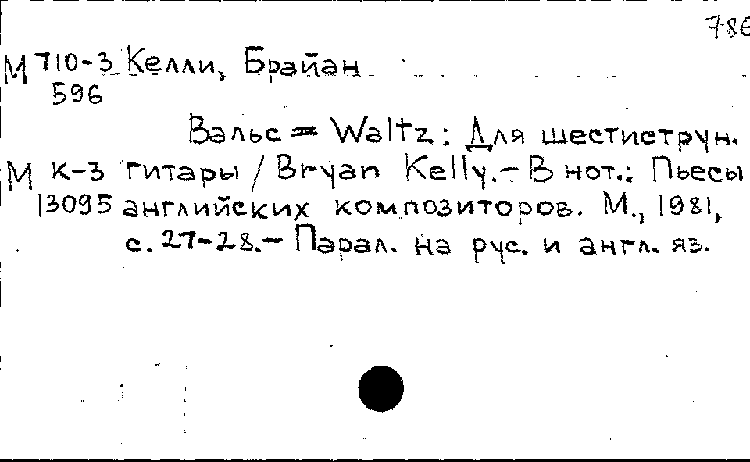 786
М 710-3 Келли, Брайан
596
Вальс = Waltz: Для шестиструн.
М К-3 гитары / Bryan Kelly.- В нот.: Пьесы
13095 английских композиторов. М., 1981,
с. 27-28.- Парал. на рус. и англ. яз.